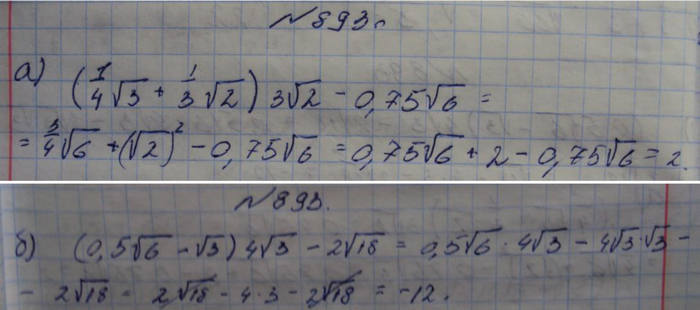 №893.
а) (1/4√3 + 1/3√2) 3√2 - 0,75√6 =
= 3/4√6 + (√2)² - 0,75√6 = 0,75√6 + 2 - 0,75√6 = 2.
№893.
б) (0,5√6 - √3) 4√3 - 2√18 = 0,5√6 · 4√3 - 4√3·√3 -
- 2√18 = 2√18 - 4·3 - 2√18 = -12.